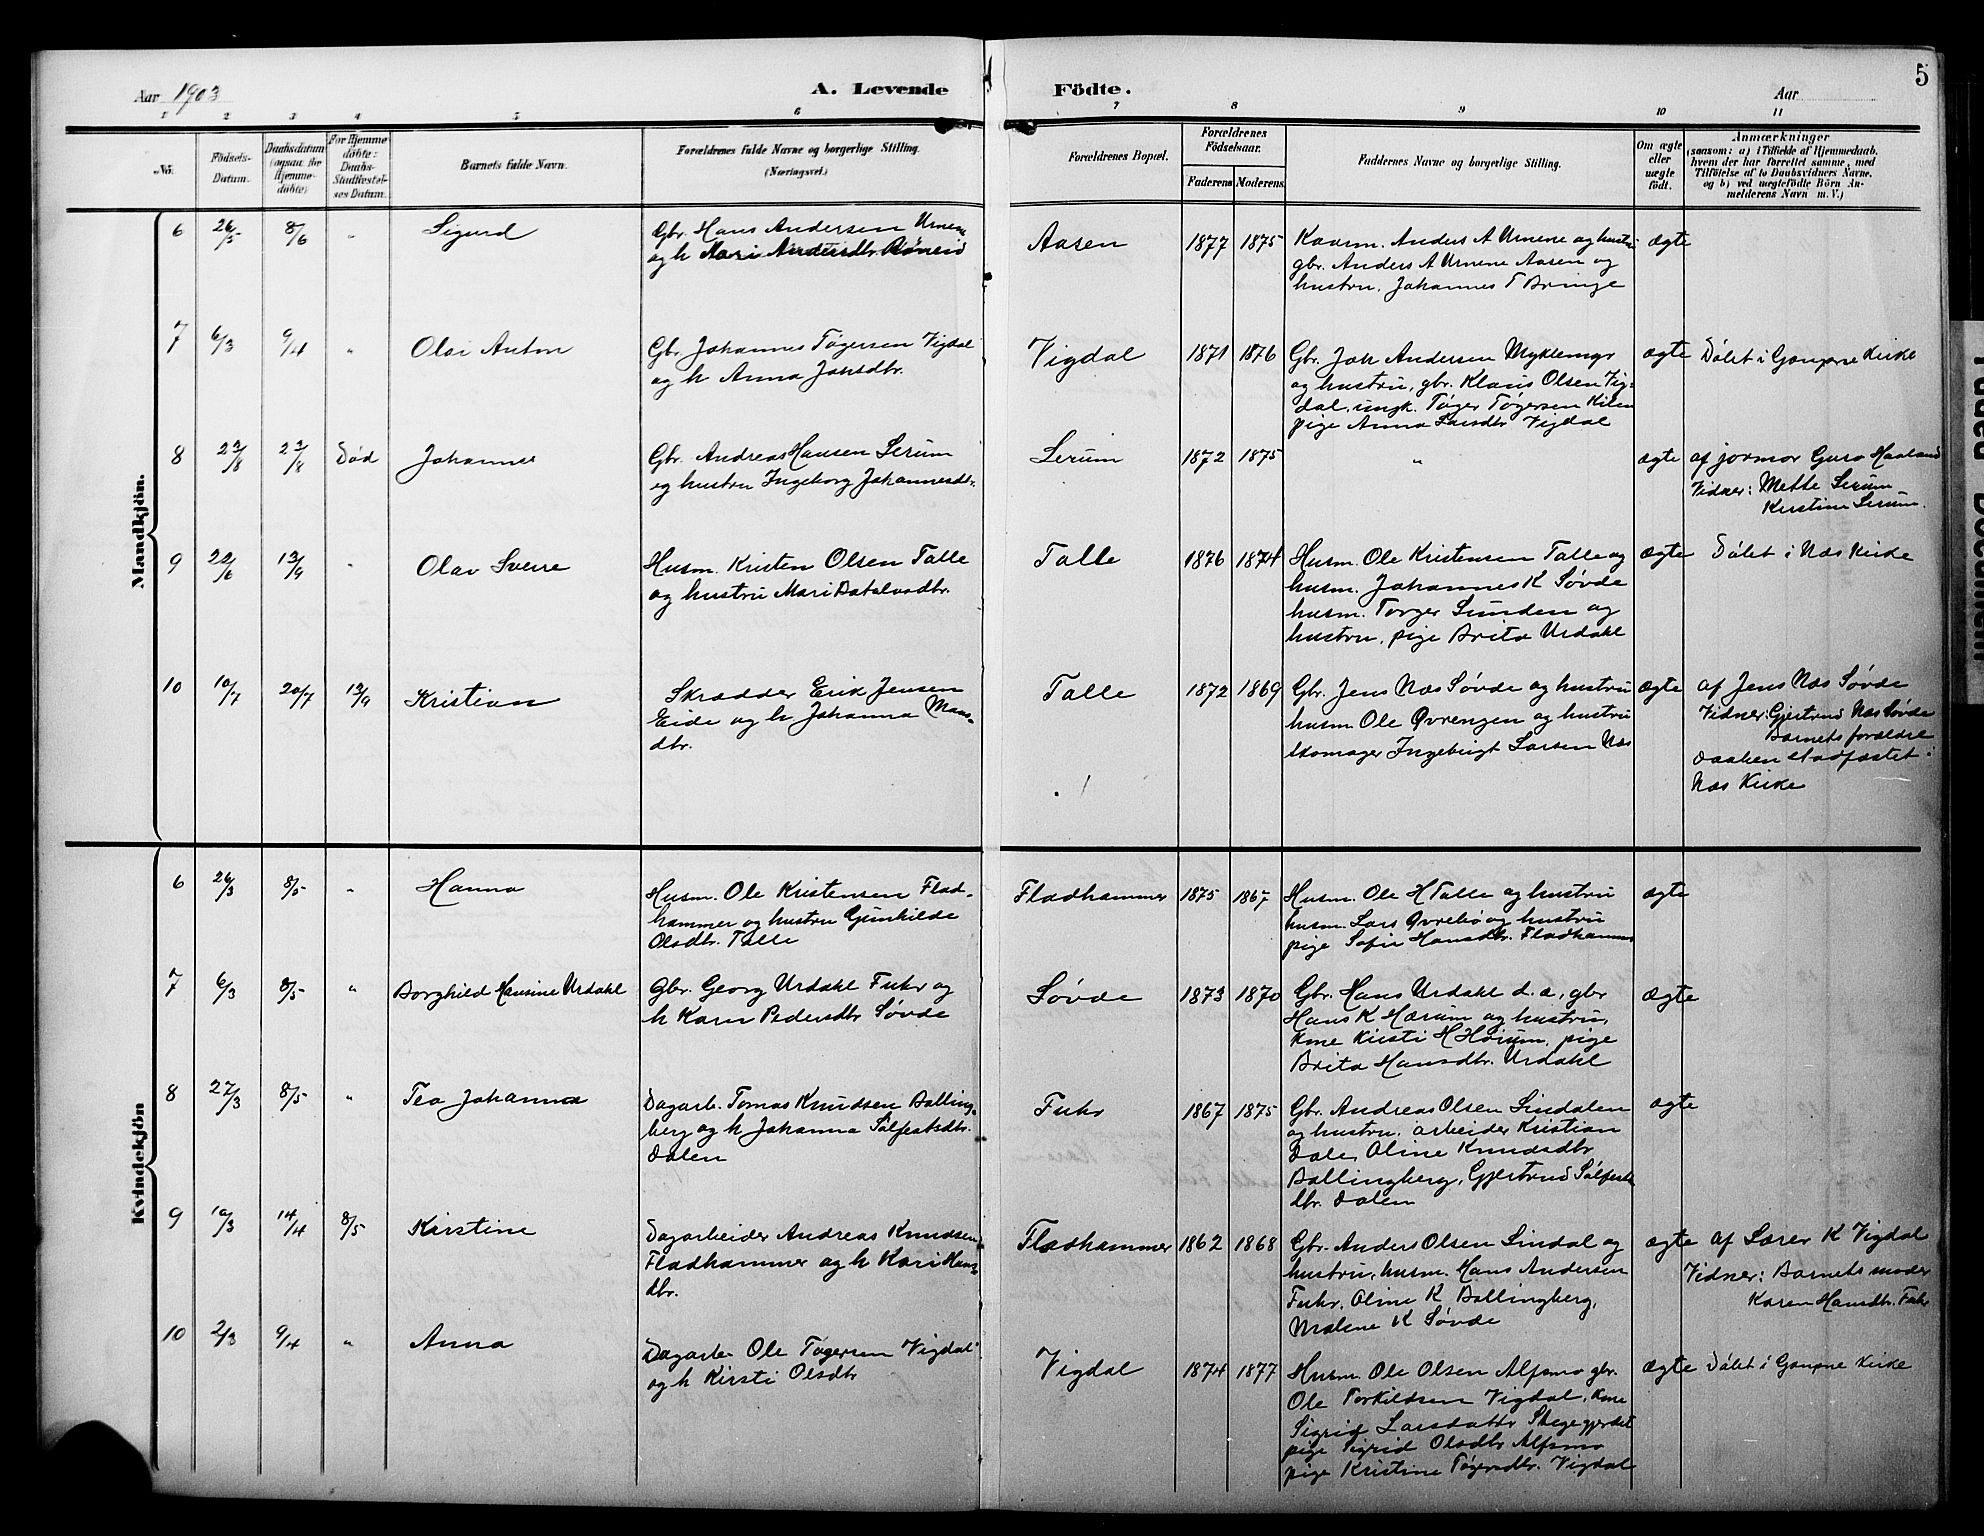 Aar 1903
A. Levende
Födte.
Aar
5
1 2 3 4 5 6 7 8 9 10 11
No.
Födsels-
Datum.
Daabsdatum
(ogsaa for
Hjemme-
döbte)
For Hjemme
döbte:
Daabs-
Stadfæstel-
ses Datum.
Barnets fulde Navn.
Forældrenes fulde Navne og borgerlige Stilling.
(Næringsvei.)
Forældrenes Bopæl.
Forældrenes
Födselsaar.
Faderens Moderens
Faddernes Navne og borgerlige Stilling.
Om ægte
eller
uægte
födt.
Anmærkninger
(saasom: a) i Tilfælde af Hjemmedaab.
hvem der har forrettet samme, med
Tilföielse af to Daabsvidners Navne.
og b) ved uægtefödte Börn An-
melderens Navn m. V.)
Mandkjön.
6 26/5 8/6 " Sigurd
Gbr. Hans Andersen Urnene
og h Mari Andersdbr. Røneid
Aasen 1877 1875
Kaarm. Anders A Urnene og hustru
gbr. Anders A Urnene Aasen og
hustru, Johannes T Bringe
ægte
7 6/3 9/4 " Olai Anton
Gbr. Johannes Tøgersen Vigdal
og h Anna Johsdbr.
Vigdal 1871 1876
Gbr. Joh Andersen Myklemyr
og hustru, gbr. Klaus Olsen Vig-
dal, ungk. Tøger Tøgersen Kilen
pige Anna Larsdbr Vigdal
ægte Døbt i Gaupne Kirke
8 23/8 23/8 Død Johannes
Gbr. Andreas Hansen Lerum
og hustru Ingeborg Johannesdbr.
Lerum 1872 1875
"
ægte af jormor Guro Haaland
Vidner: Mette Lerum
Kirstine Lerum.
9 22/6 13/9 " Olav Sverre
Husm. Kristen Olsen Talle
og hustru Mari Botolvsdbr.
Talle 1876 1874
Husm. Ole Kristensen Talle og
husm. Johannes K Søvde
husm. Torger Sunden og
hustru, pige Brita Urdahl
ægte Døbt i Næs Kirke
10 10/7 20/7 13/9 Kristian
Skrædder Erik Jensen
Eide og h Johanna Mons-
dbr.
Talle 1872 1869
Gbr. Jens Næs Søvde og hustru
husm. Ole Øvrengen og hustru
skomager Ingebrigt Larsen Næs
ægte af Jens Næs Søvde
Vidner: Gjertrud Næs Søvde
Barnets forældre
Daaben stadfæstet i
Næs Kirke
Kvindekjön
6 26/3 8/5 " Hanna
Husm. Ole Kristensen Flad-
hammer og hustru Gunhilde
Olsdbr. Talle
Fladhammer 1875 1867
Husm. Ole H Talle og hustru
husm. Lars Øvrebø og hustru
pige Sofie Hansdbr. Fladhammer
ægte
7 6/3 8/5 " Borghild Hansine Urdahl
Gbr. Georg Urdahl Fuhr og
h Karn Pedersdbr Søvde
Søvde 1873 1870
Gbr. Hans Urdahl d.æ, gbr
Hans K Hærum og hustru,
kone Kirsti H Høium, pige
Brita Hansdbr. Urdahl
ægte
8 27/3 8/5 " Tea Johanna
Dagarb. Tomas Knudsen Bolling-
berg og h Johanna Sølfestsdbr.
Dalen
Fuhr 1867 1875
Gbr. Andreas Olsen Lindalen
og hustru, arbeider Kristian
Dale, Oline Knudsdbr
Bollingberg, Gjertrud Sølfests
dbr. Dalen
ægte
9 10/3 14/4 8/5 Kirstine
Dagarbeider Andreas Knudsen
Fladhammer og h Kari Hans-
dbr.
Fladhammer 1862 1868
Gbr. Anders Olsen Lindal og
hustru, husm. Hans Andersen
Fuhr, Oline K Bollingberg,
Malene K Søvde
ægte af Lærer K Vigdal
Vidner: Barnets moder
Karen Hansdbr. Fuhr
10 2/3 9/4 " Anna
Dagarb Ole Tøgersen Vigdal
og h Kirsti Olsdbr
Vigdal 1874 1877
Husm. Ole Olsen Alfsmo gbr.
Ole Torkildsen Vigdal, kone
Sigrid Larsdatter Skegegjerdet
pige Sigrid Olsdbr Alfsmo
pige Kristine Tøgersdbr. Vigdal
ægte Døbt i Gaupne Kirke